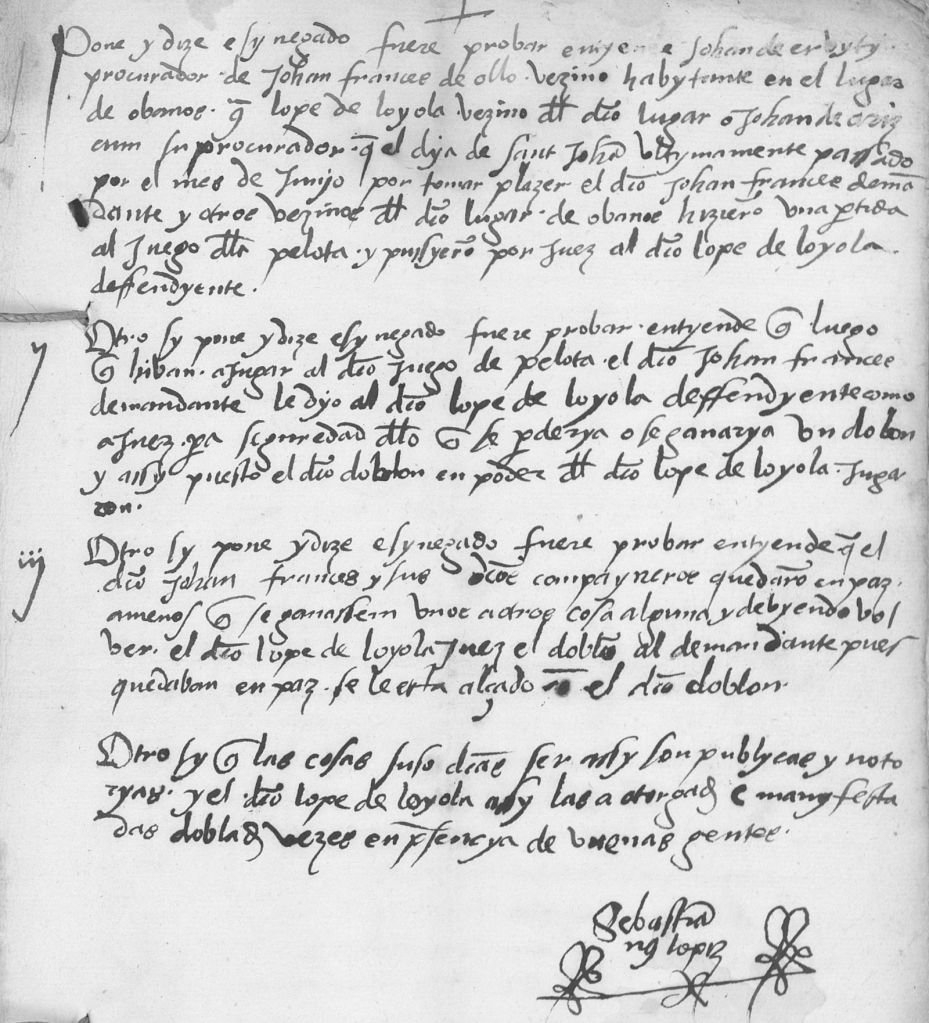 Pone y dize e sy negado fuere probar entyende Johan de
procurador de Johan frances de ollo vezino habytante en el lugar
de obanos q̄ lope de loyola vezino dl dco lugar o Johan de ariz
cum su procurador q̄ el dya de sant Johā ultymamente passado
por el mes de Junyo por tomar plazer el dco Johan frances demā
dante y otros vezinos dl dco lugar de obanos hizierō una ptida
al Juego dla pelota y pusyerō por Juez al dco lope de loyola
deffendyente.
ij
Otro sy pone y dize e sy negado fuere probar entyende q̄ luego
q̄ hiban a Jugar al dco Juego de pelota el dco Johan frances
demandante le dyo al dco lope de loyola deffendyente como
a Juez pa seguredad dlo q̄ se pderya o se ganarya un doblon
y assy puesto el dco doblon en poder dl dco lope de loyola Juga
ron.
iij
Otro sy pone y dize e sy negado fuere probar entyende q̄ el
dco Johan frances y sus dcos compayneros quedarō en paz
a menos q̄ se ganassen unos a otros cosa alguna y debyendo vol
ver el dco lope de loyola Juez el doblō al demandante pues
quedaban en paz se le esta alçado el dco doblon
Otro sy q̄ las cosas suso dcas ser assy son publycas y noto
ryas y el dco lope de loyola assy las a otorgads e manyfesta
das doblads vezes en psencya de buenas gentes.
Sebastiā
lopiz